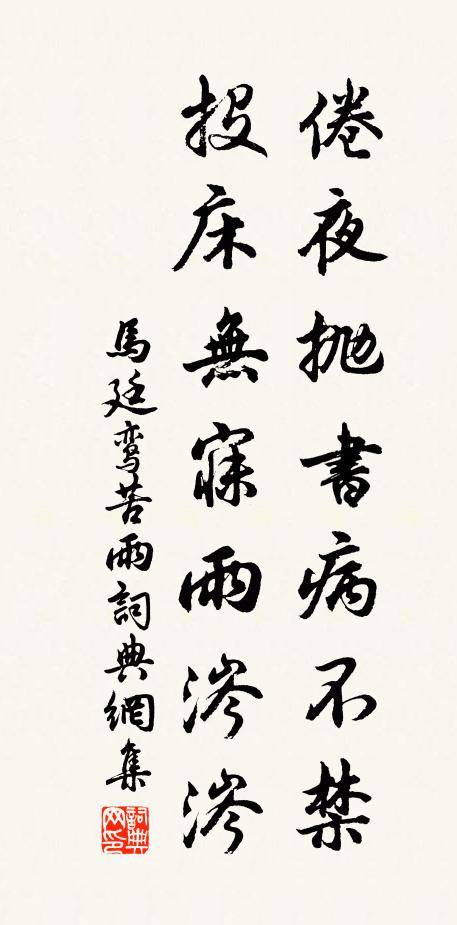 倦夜抛書病不禁
投床無寐雨涔涔
馬廷鸾苦雨詞典網集
詞典网印